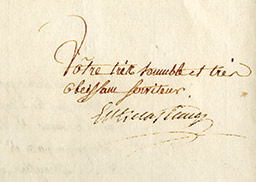 Votre très humble et très
obeissant serviteur.